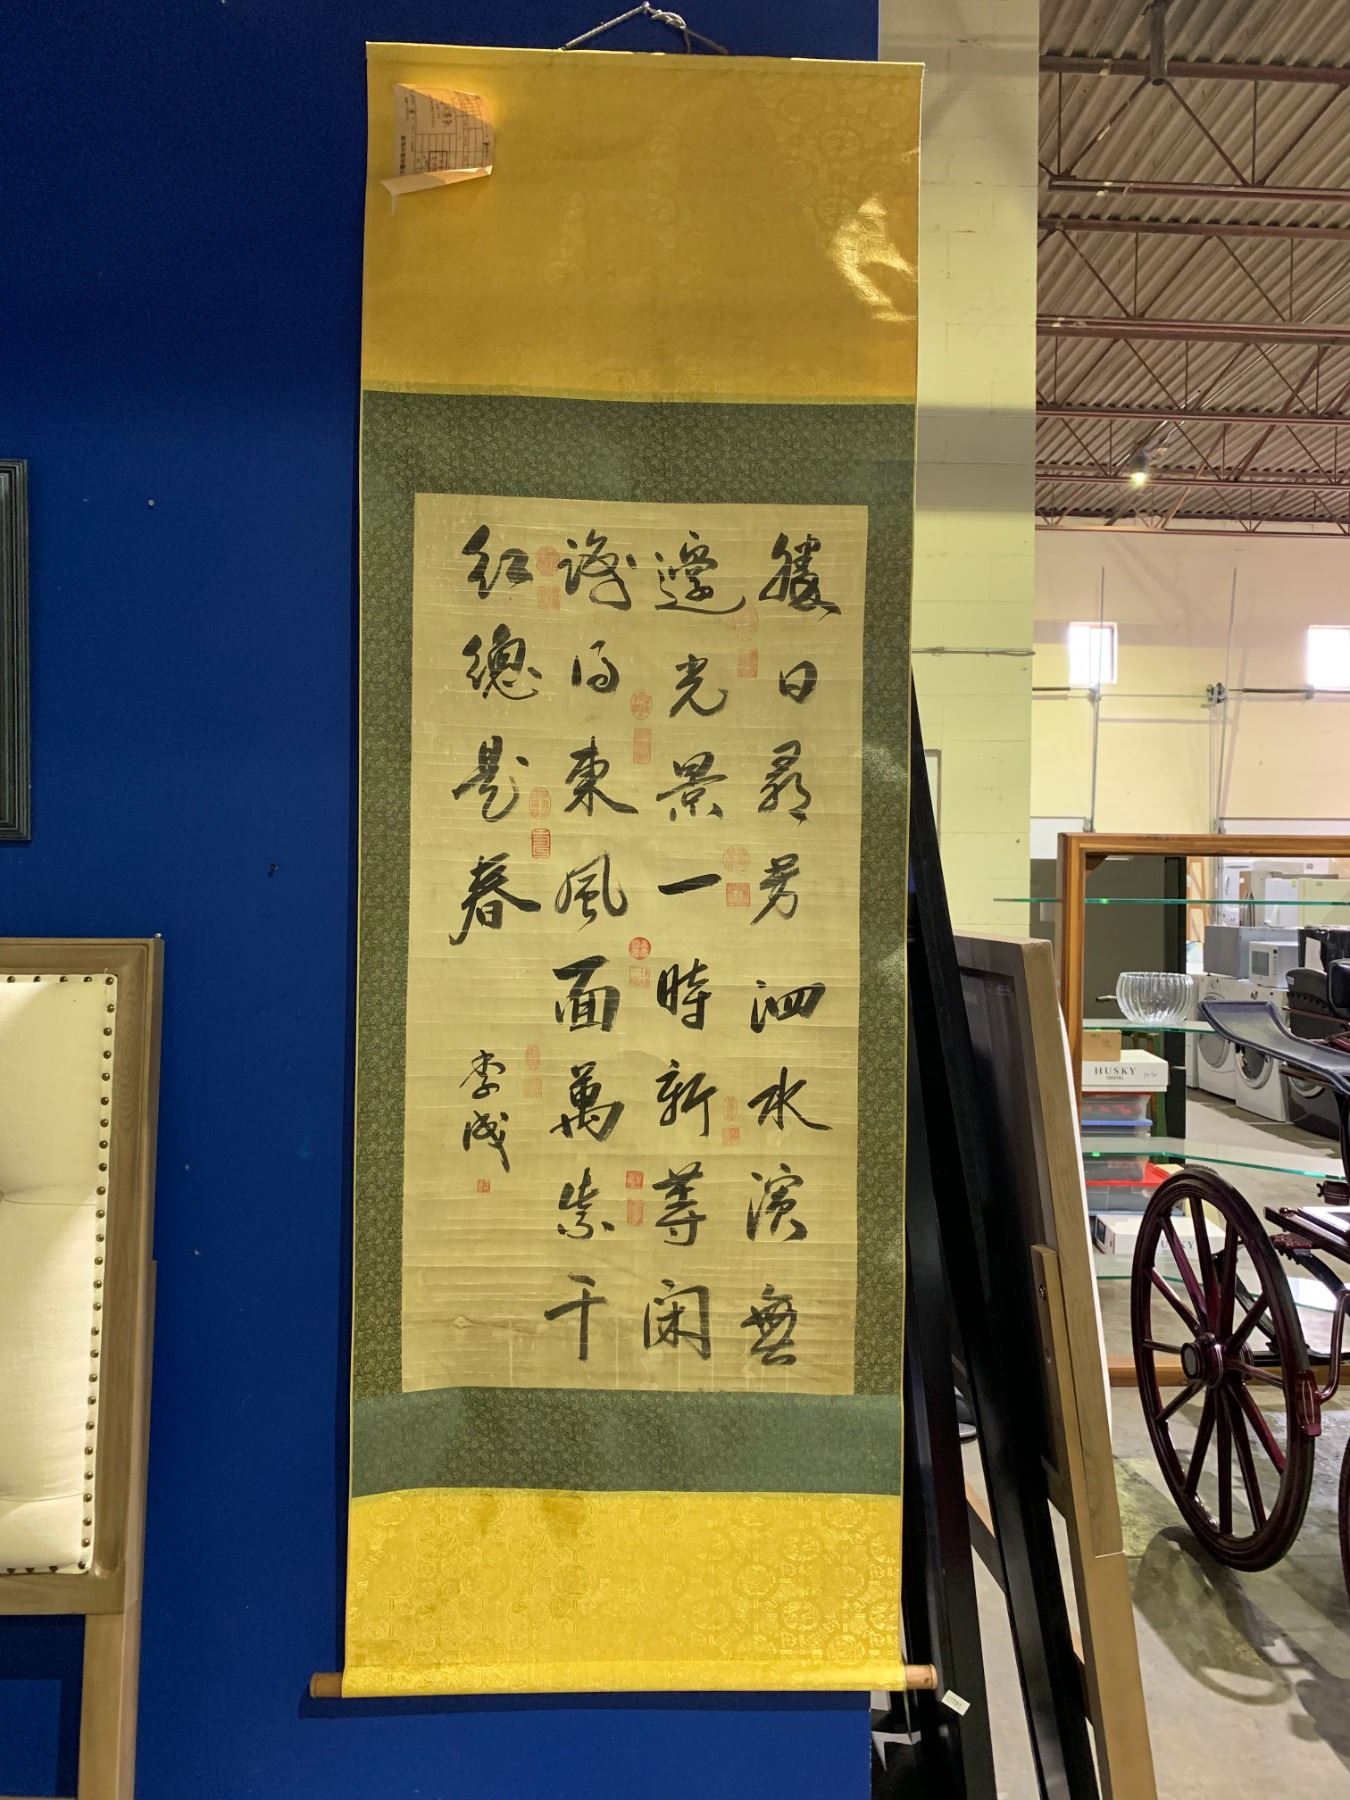 勝日尋芳泗水濱無
邊光景一時新等閑
識得東風面萬紫千
紅總是春
李成
HUSKY